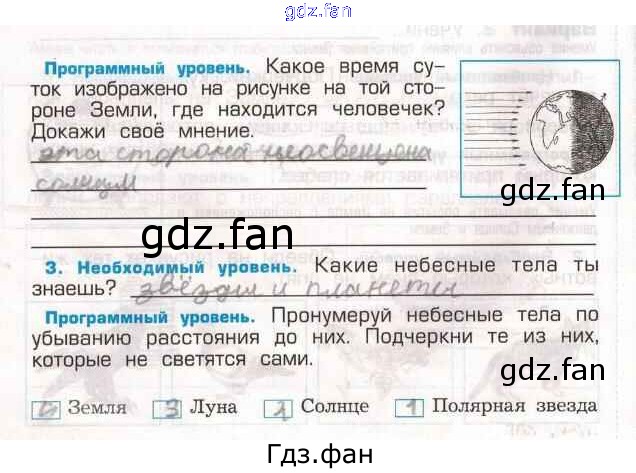 gdz.fan
Программный уровень. Какое время су-
ток изображено на рисунке на той сто-
роне Земли, где находится человечек?
Докажи своё мнение.
эта сторона неосвещена
солнцем
gdz.fan
gdz.fan
3. Необходимый уровень. Какие небесные тела ты
знаешь? звёзды и планеты
Программный уровень. Пронумеруй небесные тела по
убыванию расстояния до них. Подчеркни те из них,
которые не светятся сами.
gdz.fan
4 Земля 3 Луна 2 Солнце 1 Полярная звезда
Гдз.фан